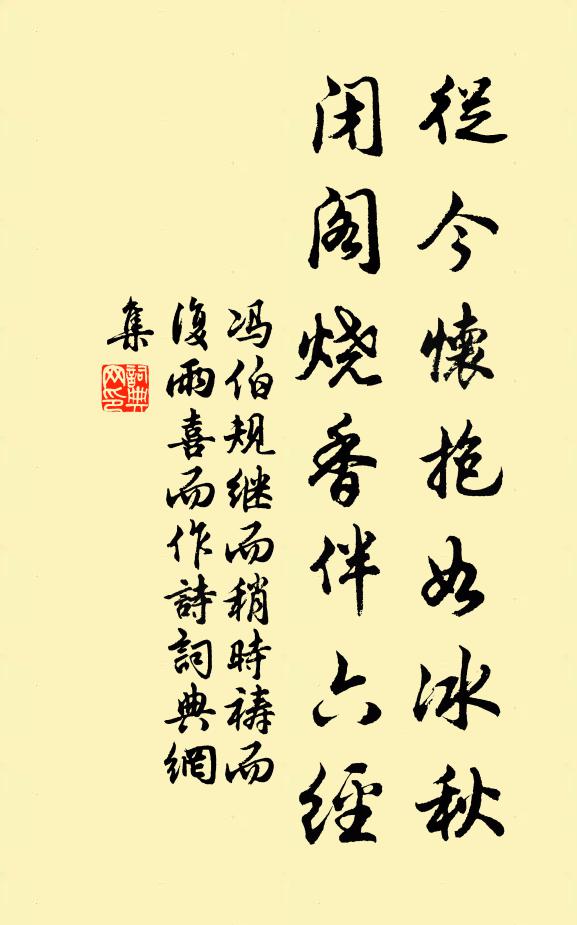 從今懷抱如冰秋
闭阁烧香伴六經
冯伯規继而稍時禱而
復雨喜而作詩詞典網
集
詞典
网印